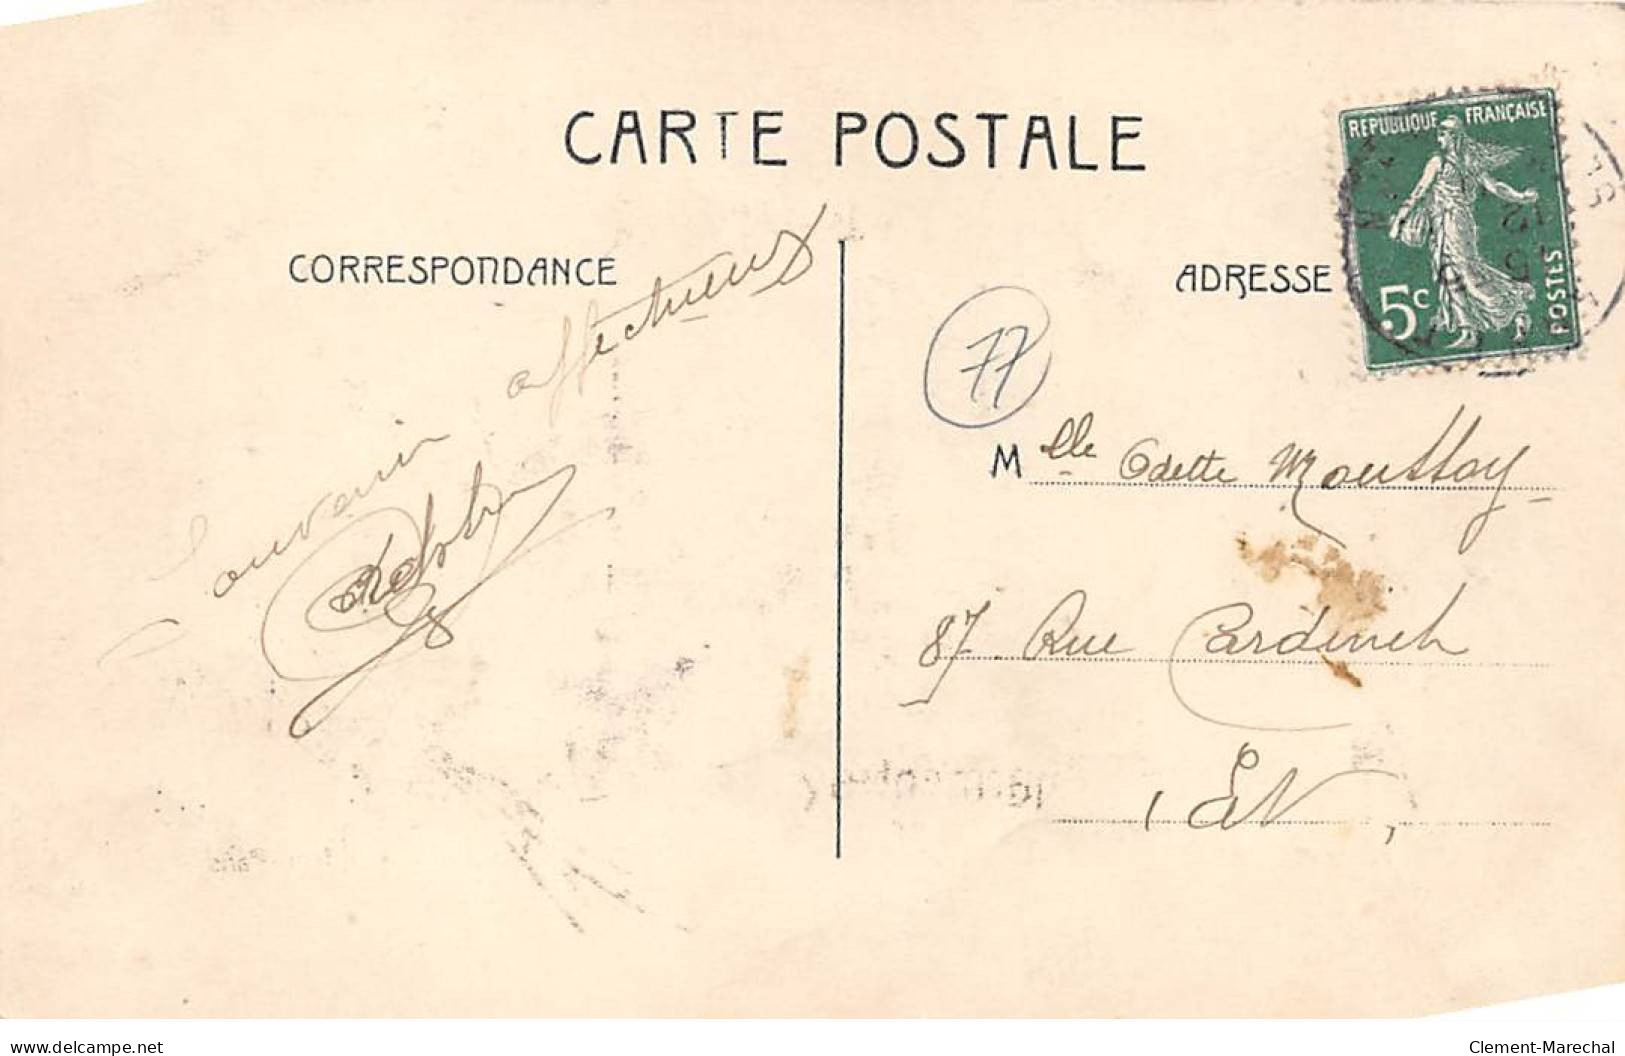 CARTE POSTALE
CORRESPONDANCE
ADRESSE
REPUBLIQUE FRANÇAISE
5c
POSTES
77
Souvenir affectueux
Mlle Odette Mouttoy
87 Rue Cardinet
EV
delcampe.net
Clement-Marechal